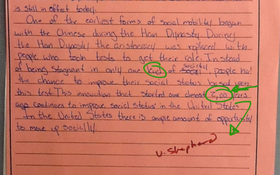 is still in effect today.
One of the earliest forms of social mobility began
with the Chinese during the Han Dynasty. During
the Han Dynasty the aristocracy was replaced with
people who took tests to get their role. Instead
of being stagnant in only one level of social people had
society
the chance to improve their social status based upon
this test. This innovation that started over 2,00 years
ago continues to improve social status in the United States
In the United States there is ample amount of opportunity
to move up socially.
U. Shepherd